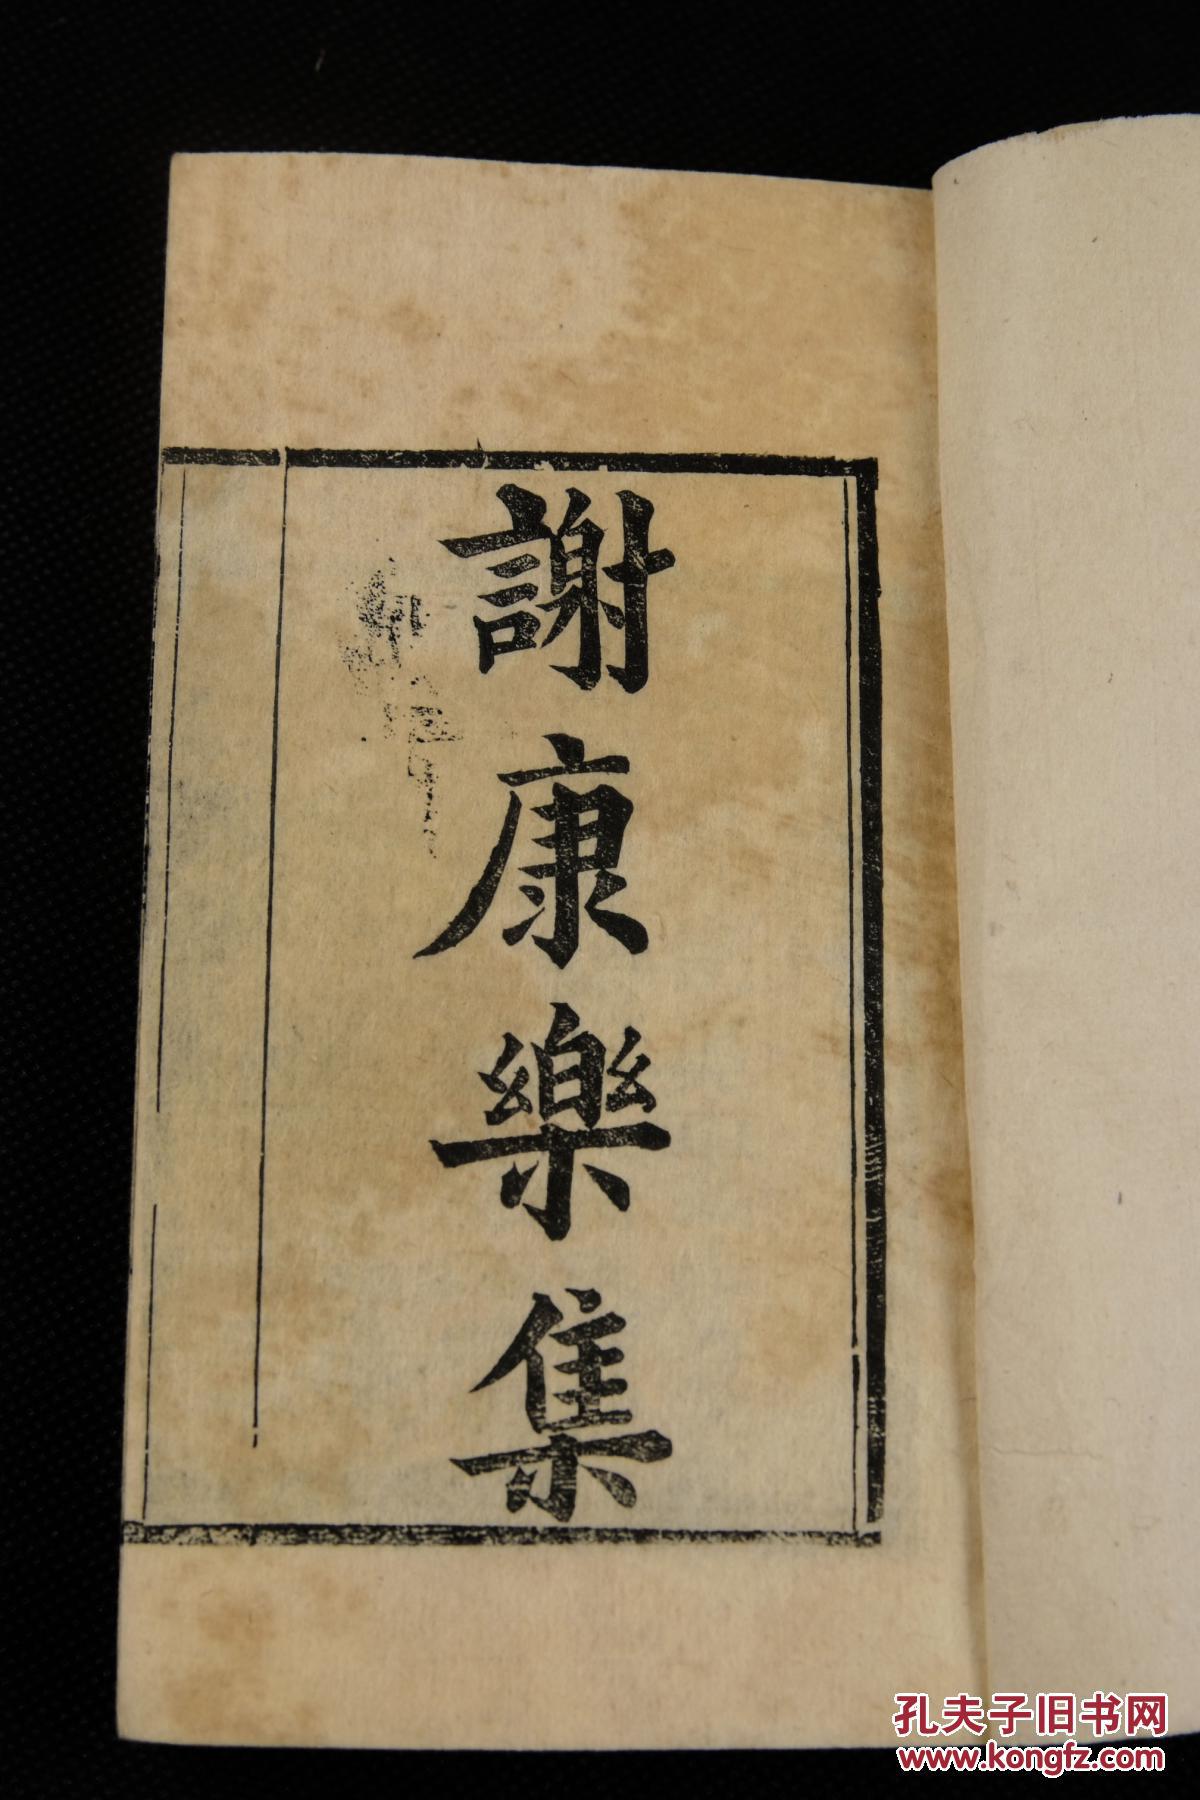 謝康樂集
孔夫子旧书网
www.kongfz.com